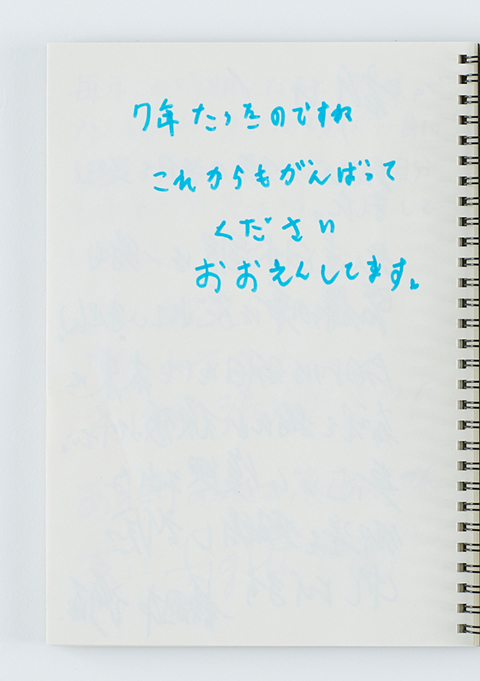 7年たったのですね
これからもがんばって
ください
おおえんしてます。